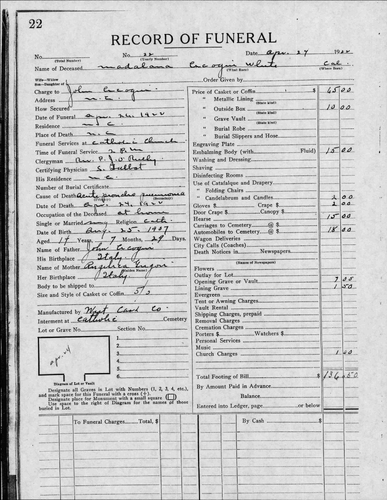 22
RECORD OF FUNERAL
No. No. 22 Date Apr. 27 19
(Total Number) (Yearly Number)
Name of Deceased Madalana White Cal.
(What Race) (Where Born)
Wife—Widow
Son—Daughter of Order Given by
Charge to John
Address N.C.
How Secured
Date of Funeral Apr. 26, 1922
Residence
Place of Death N.C.
Funeral Services at Catholic Church
Time of Service 2 P.M.
Clergyman Rev. P. J. O'
Certifying Physician S. Talbot
His Residence N.C.
Number of Burial Certificate
Cause of Death Acute pneumonia
Date of Death Apr. 24,
Occupation of the Deceased at home
Single or Married Religion Cath
Date of Birth Aug. 25.
Aged Years Months 29 Days
Name of Father John
His Birthplace Italy
Name of Mother Angelica
(Maiden Name)
Her Birthplace Italy
Body to be shipped to
Size and Style of Casket or Coffin
Manufactured by West Co.
Interment at Catholic Cemetery
Lot or Grave No. Section No.
1.
2.
3.
4.
5.
6.
Diagram of Lot or Vault
Designate all Graves in Lot with Numbers (1, 2, 3, 4, etc.),
and mark space for this Funeral with a cross (+).
Designate place for Monument with a small square
Use space to right of Diagram for the names of those
buried in Lot.
Price of Casket or Coffin $ 65 00
" Metallic Lining
(State Kind)
" Outside Box 10 00
(State Kind)
" Grave Vault
(State Kind)
" Burial Robe
(State Kind)
" Burial Slippers and Hose
Engraving Plate
Embalming Body (with Fluid) 15 00
Washing and Dressing
Shaving
Disinfecting Rooms
Use of Catafalque and Drapery
" Folding Chairs
" Candelabrum and Candles 2 00
Gloves $ Crape $ 2 00
Door Crape $ Canopy $
Hearse 15 00
Carriages to Cemetery @ $
Automobiles to Cemetery @ $ 18 00
Wagon Deliveries
City Calls (Coach)
Death Notices in Newspapers
(Names of Newspapers)
Flowers
Outlay for Lot
Opening Grave or Vault
Lining Grave 1 50
Evergreen
Tent or Awning Charges
Vault Rental
Shipping Charges, prepaid
Removal Charges
Cremation Charges
Porters $ Watchers $
Personal Services
Music
Church Charges 1 00
Total Footing of Bill $
By Amount Paid in Advance
Balance
Entered into Ledger, page or below.
To Funeral Charges, Total $ By Cash $